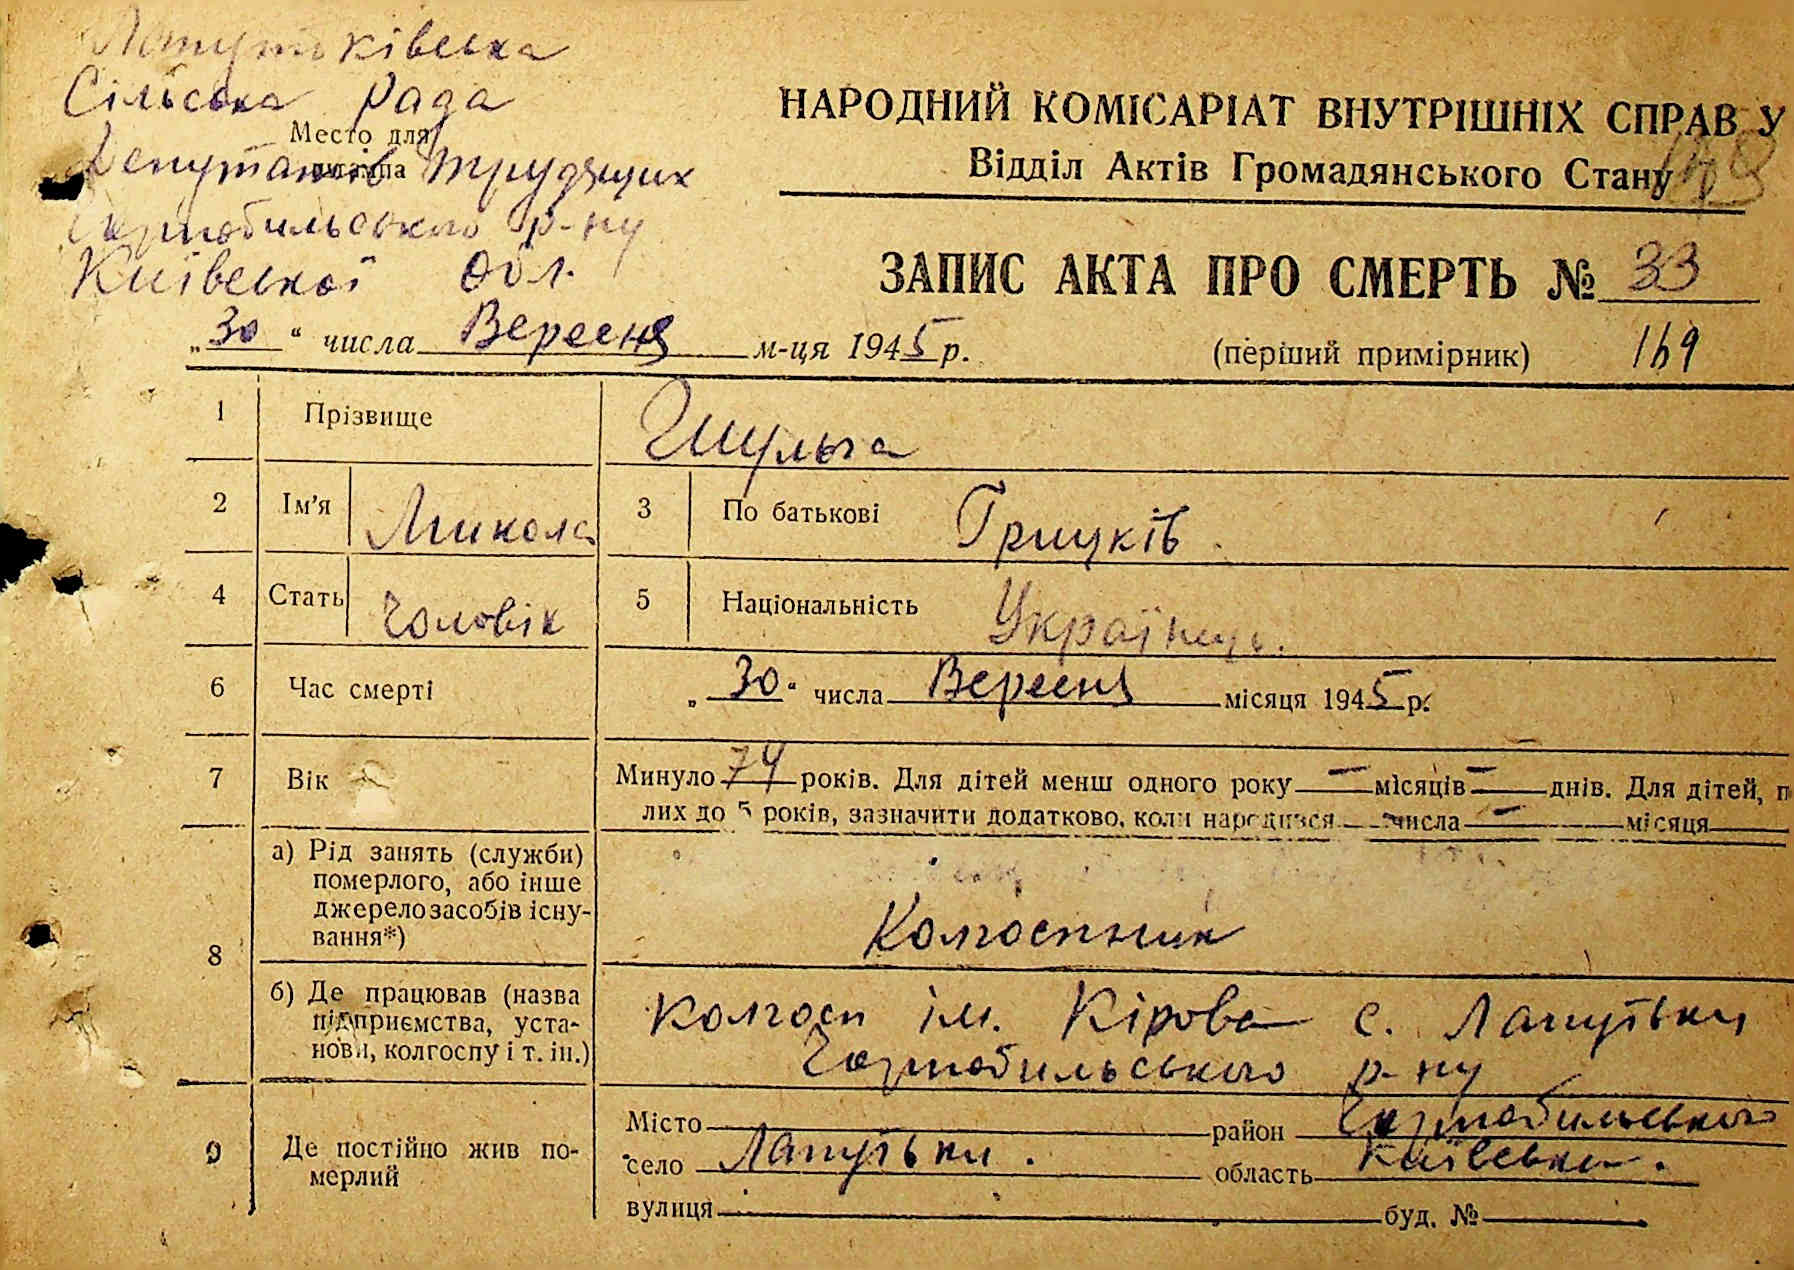 Лапутьківська
Сільська Рада
Место для
штампа
Депутатів Трудящих
Чорнобильського р-ну
Київської обл.
НАРОДНИЙ КОМІСАРІАТ ВНУТРІШНІХ СПРАВ У
Відділ Актів Громадянського Стану
ЗАПИС АКТА ПРО СМЕРТЬ № 33
„30“ числа Вересня м-ця 1945 р.
(перший примірник) 169
1 Прізвище Шульга
2 Ім'я Микола 3 По батькові Грицків.
4 Стать Чоловік 5 Національність Українець.
6 Час смерті „30“ числа Вересня місяця 1945 р.
7 Вік Минуло 74 років. Для дітей менш одного року — місяців — днів. Для дітей, п
лих до 5 років, зазначити додатково, коли народився — числа — місяця
8 а) Рід занять (служби)
померлого, або інше
джерело засобів існу-
вання*)
Колгоспник
б) Де працював (назва
підприємства, уста-
нови, колгоспу і т. ін.)
Колгосп ім. Кірова с. Лапутьки
Чорнобильського р-ну
9 Де постійно жив по-
мерлий
Місто район Чорнобильського
село Лапутьки. область Київська.
вулиця буд. №